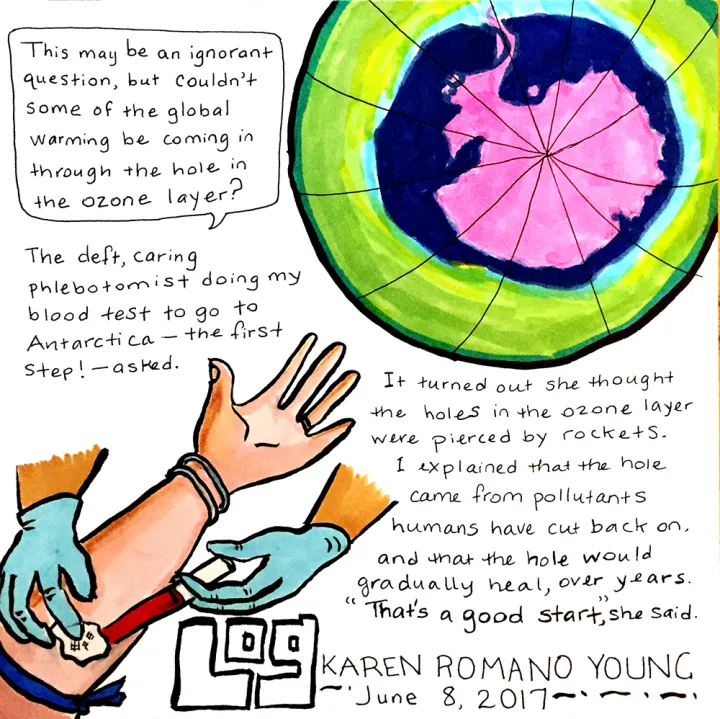 This may be an ignorant
question, but couldn't
some of the global
warming be coming in
through the hole in
the ozone layer?
The deft, caring
phlebotomist doing my
blood test to go to
Antarctica — the first
step! — asked.
It turned out she thought
the holes in the ozone layer
were pierced by rockets.
I explained that the hole
came from pollutants
humans have cut back on,
and that the hole would
gradually heal, over years.
"That's a good start," she said.
Log
KAREN ROMANO YOUNG
June 8, 2017